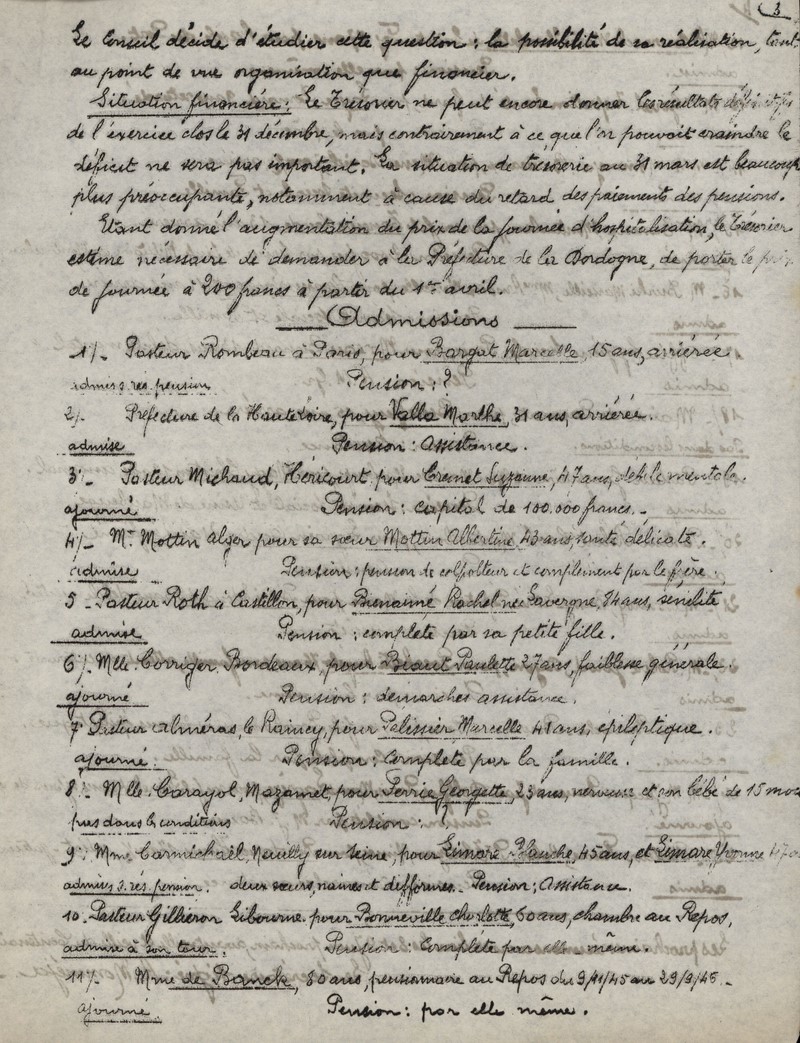 3
Le Conseil décide d'étudier cette question : la possibilité de sa réalisation, tant
au point de vue organisation que financier.
Situation financière : Le Trésorier ne peut encore donner les résultats définitifs
de l'exercice clos le 31 décembre, mais contrairement à ce que l'on pouvait craindre le
déficit ne sera pas important. La situation de trésorerie au 31 mars est beaucoup
plus préoccupante, notamment à cause du retard des paiements des pensions.
Etant donné l'augmentation du prix de la journée d'hospitalisation, le Trésorier
estime nécessaire de demander à la Préfecture de la Dordogne, de porter le prix
de journée à 200 francs à partir du 1er avril.
Admissions
1/- Pasteur Rombeau à Paris, pour Bargat Marcelle, 15 ans, arriérée
admis s. res. pension Pension : ?
2/- Préfecture de la Haute Loire, pour Valla Marthe, 31 ans, arriérée.
admise Pension : Assistance.
3/- Pasteur Michaud, Héricourt pour Cremet Suzanne, 47 ans, débile mentale.
ajourné Pension : capital de 100.000 francs.-
4/- Mr Mottin Alger pour sa sœur Mottin Albertine 43 ans, santé délicate.
admise Pension : pension de colpolteur et complément par le frère.
5 - Pasteur Roth à Castillon, pour Bienaimé Rachel née Lavergne, 84 ans, sénilité
admise Pension : complète par sa petite fille.
6/- Mlle Corriger, Bordeaux, pour Biaut Paulette 27 ans, faiblesse générale.
ajourné Pension : démarches assistance.
7 Pasteur Alméras, le Raincy, pour Pelissier Marcelle 41 ans, épileptique.
ajourné : Pension : Complète par la famille.
8/- Mlle Carayol, Mazamet, pour Ferrie Georgette, 23 ans, nerveuse et son bébé de 15 mois
pas dans les conditions Pension :
9/- Mme Carmichaël, Neuilly sur Seine, pour Limare Blanche, 45 ans, et Limare Yvonne 47
admises s. rés. pension. deux sœurs, naines et difformes - Pension : Assistance.
10. Pasteur Gilliéron Libourne pour Bonneville Charlotte, 60 ans, chambre au Repos,
admise à son tour. Pension : Complète par elle-même.
11/- Mme de Banck, 80 ans, pensionnaire au Repos du 9/11/45 au 29/9/46 -
ajourné Pension : par elle même.